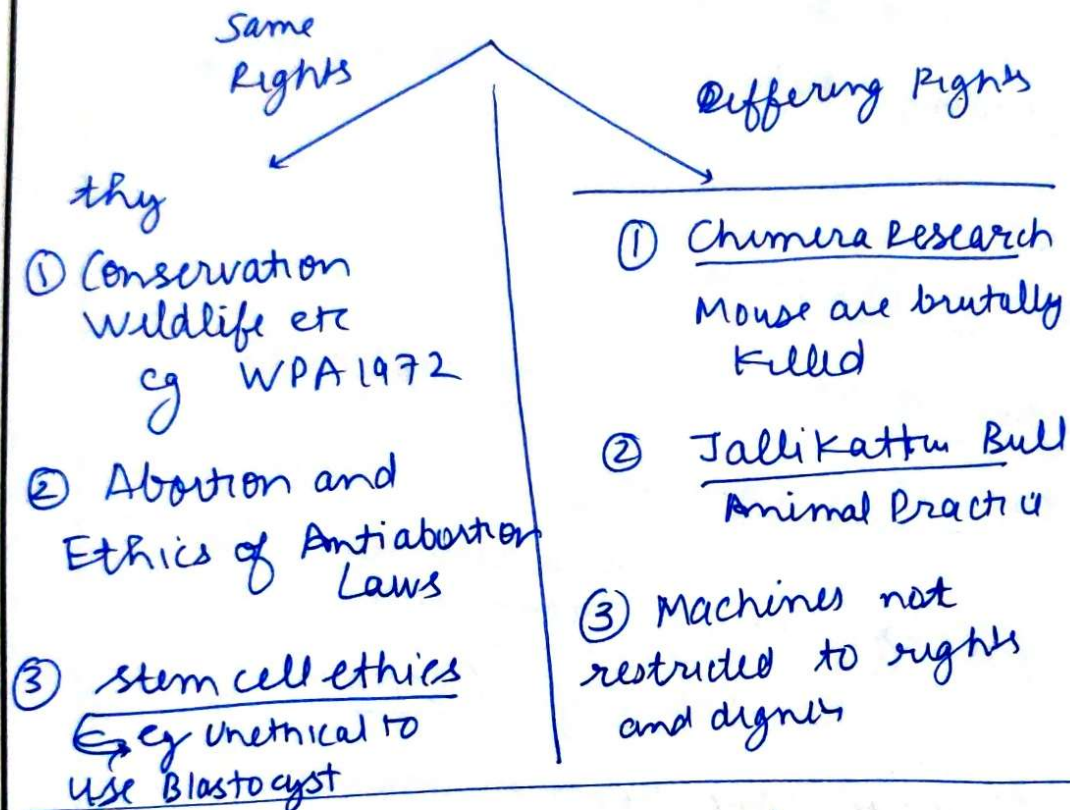 Same
Rights
thy
① Conservation
Wildlife etc
eg WPA 1972
② Abortion and
Ethics of Antiabortion
Laws
③ stem cell ethics
eg Unethical to
use Blastocyst
Differing Rights
① Chimera Research
Mouse are brutally
Killed
② Jallikattu Bull
Animal Practice
③ Machines not
restricted to rights
and dignity